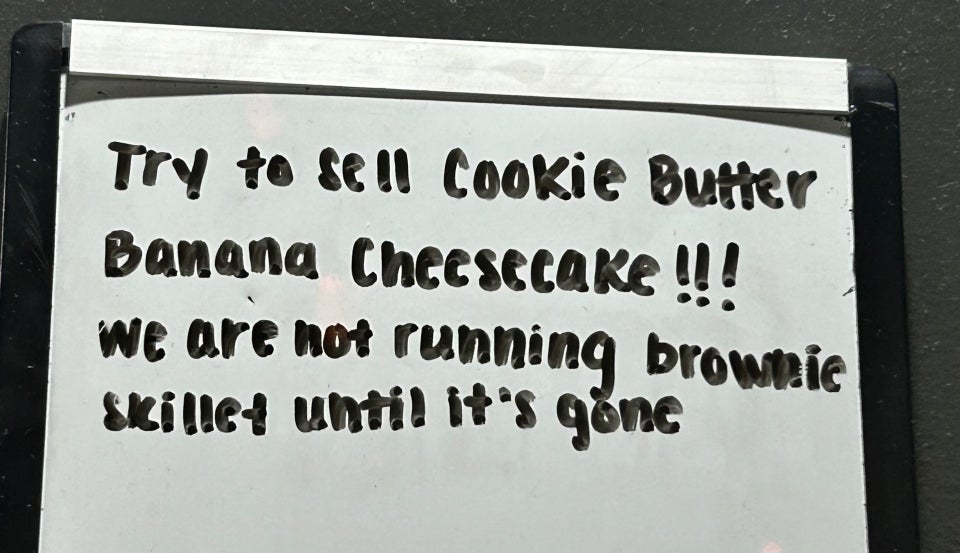 Try to sell Cookie Butter
Banana Cheesecake!!!
we are not running brownie
skillet until it's gone